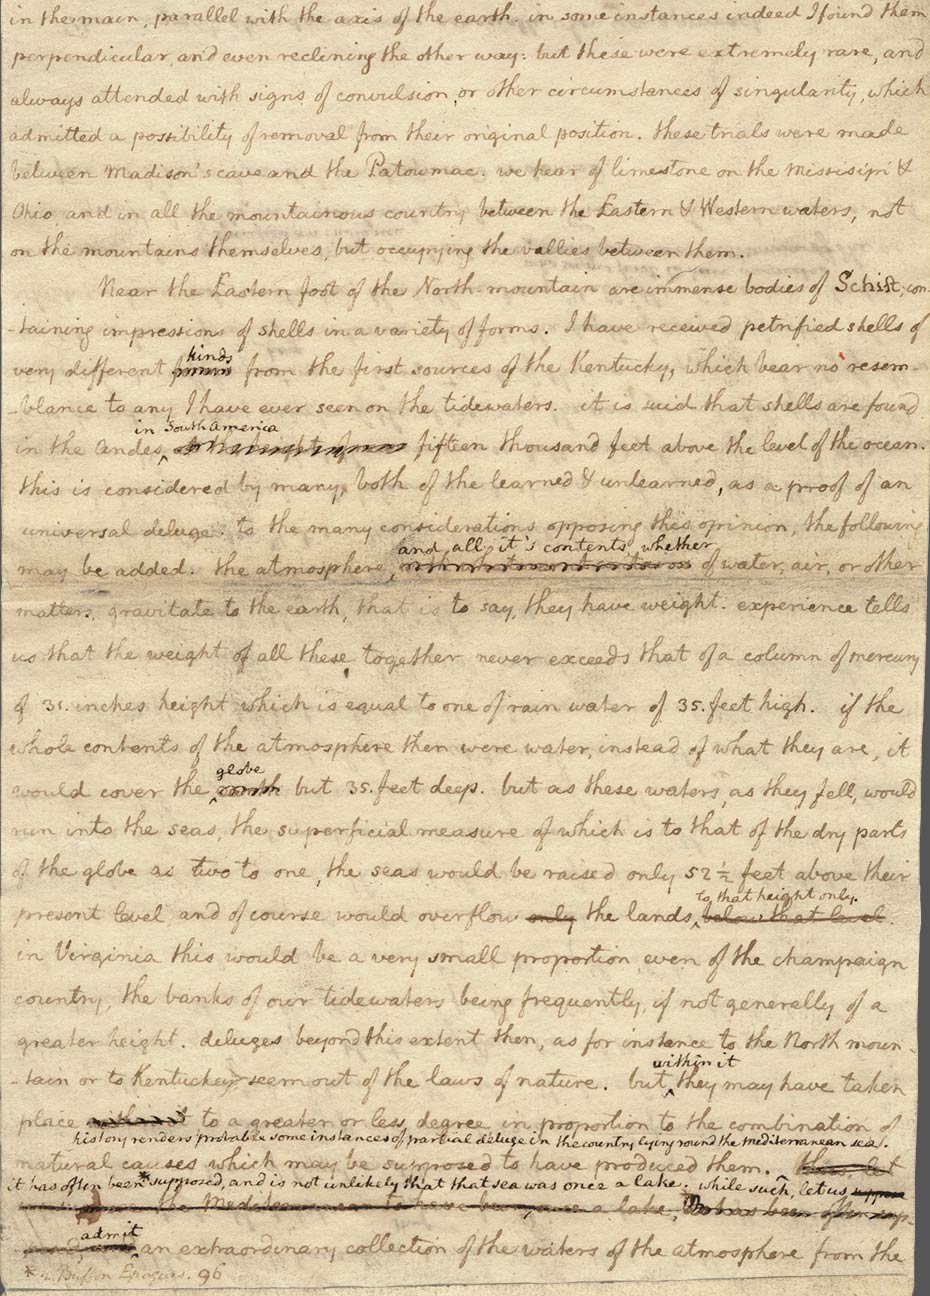 in the main, parallel with the axis of the earth. in some instances indeed I found them
perpendicular, and even reclining the other way: but these were extremely rare, and
always attended with signs of convulsion, or other circumstances of singularity, which
admitted a possibility of removal from their original position. these trials were made
between Madison's cave and the Patowmac. we hear of limestone on the Missisipi &
Ohio, and in all the mountainous country between the Eastern & Western waters, not
on the mountains themselves, but occupying the vallies between them.
Near the Eastern foot of the North mountain are immense bodies of Schist, con-
-taining impressions of shells in a variety of forms. I have received petrified shells of
kinds
very different from the first sources of the Kentucky, which bear no resem-
-blance to any I have ever seen on the tidewaters. it is said that shells are found
in South America
in the Andes, fifteen thousand feet above the level of the ocean.
this is considered by many, both of the learned & unlearned, as a proof of an
universal deluge. to the many considerations opposing this opinion, the following
and all it's contents, whether
may be added. the atmosphere, of water, air, or other
matters, gravitate to the earth, that is to say, they have weight. experience tells
us that the weight of all these together never exceeds that of a column of mercury
of 31. inches height which is equal to one of rain water of 35. feet high. if the
whole contents of the atmosphere then were water, instead of what they are, it
globe
would cover the earth but 35. feet deep. but as these waters, as they fell, would
run into the seas, the superficial measure of which is to that of the dry parts
of the globe as two to one, the seas would be raised only 52 ½ feet above their
to that height only.
present level and of course would overflow only the lands, below that level.
in Virginia this would be a very small proportion even of the champaign
country, the banks of our tidewaters being frequently, if not generally of a
greater height. deluges beyond this extent then, as for instance to the North moun-
within it
-tain or to Kentuckey, seem out of the laws of nature. but they may have taken
place to a greater or less degree in proportion to the combination of
history renders probable some instances of partial deluge in the country lying round the mediterranean sea.
natural causes which may be supposed to have produced them.
it has often been * supposed, and is not unlikely that that sea was once a lake. while such, let us
the Mediterranean to have been a lake,
admit
an extraordinary collection of the waters of the atmosphere from the
* 2. Buffon Epoques. 96